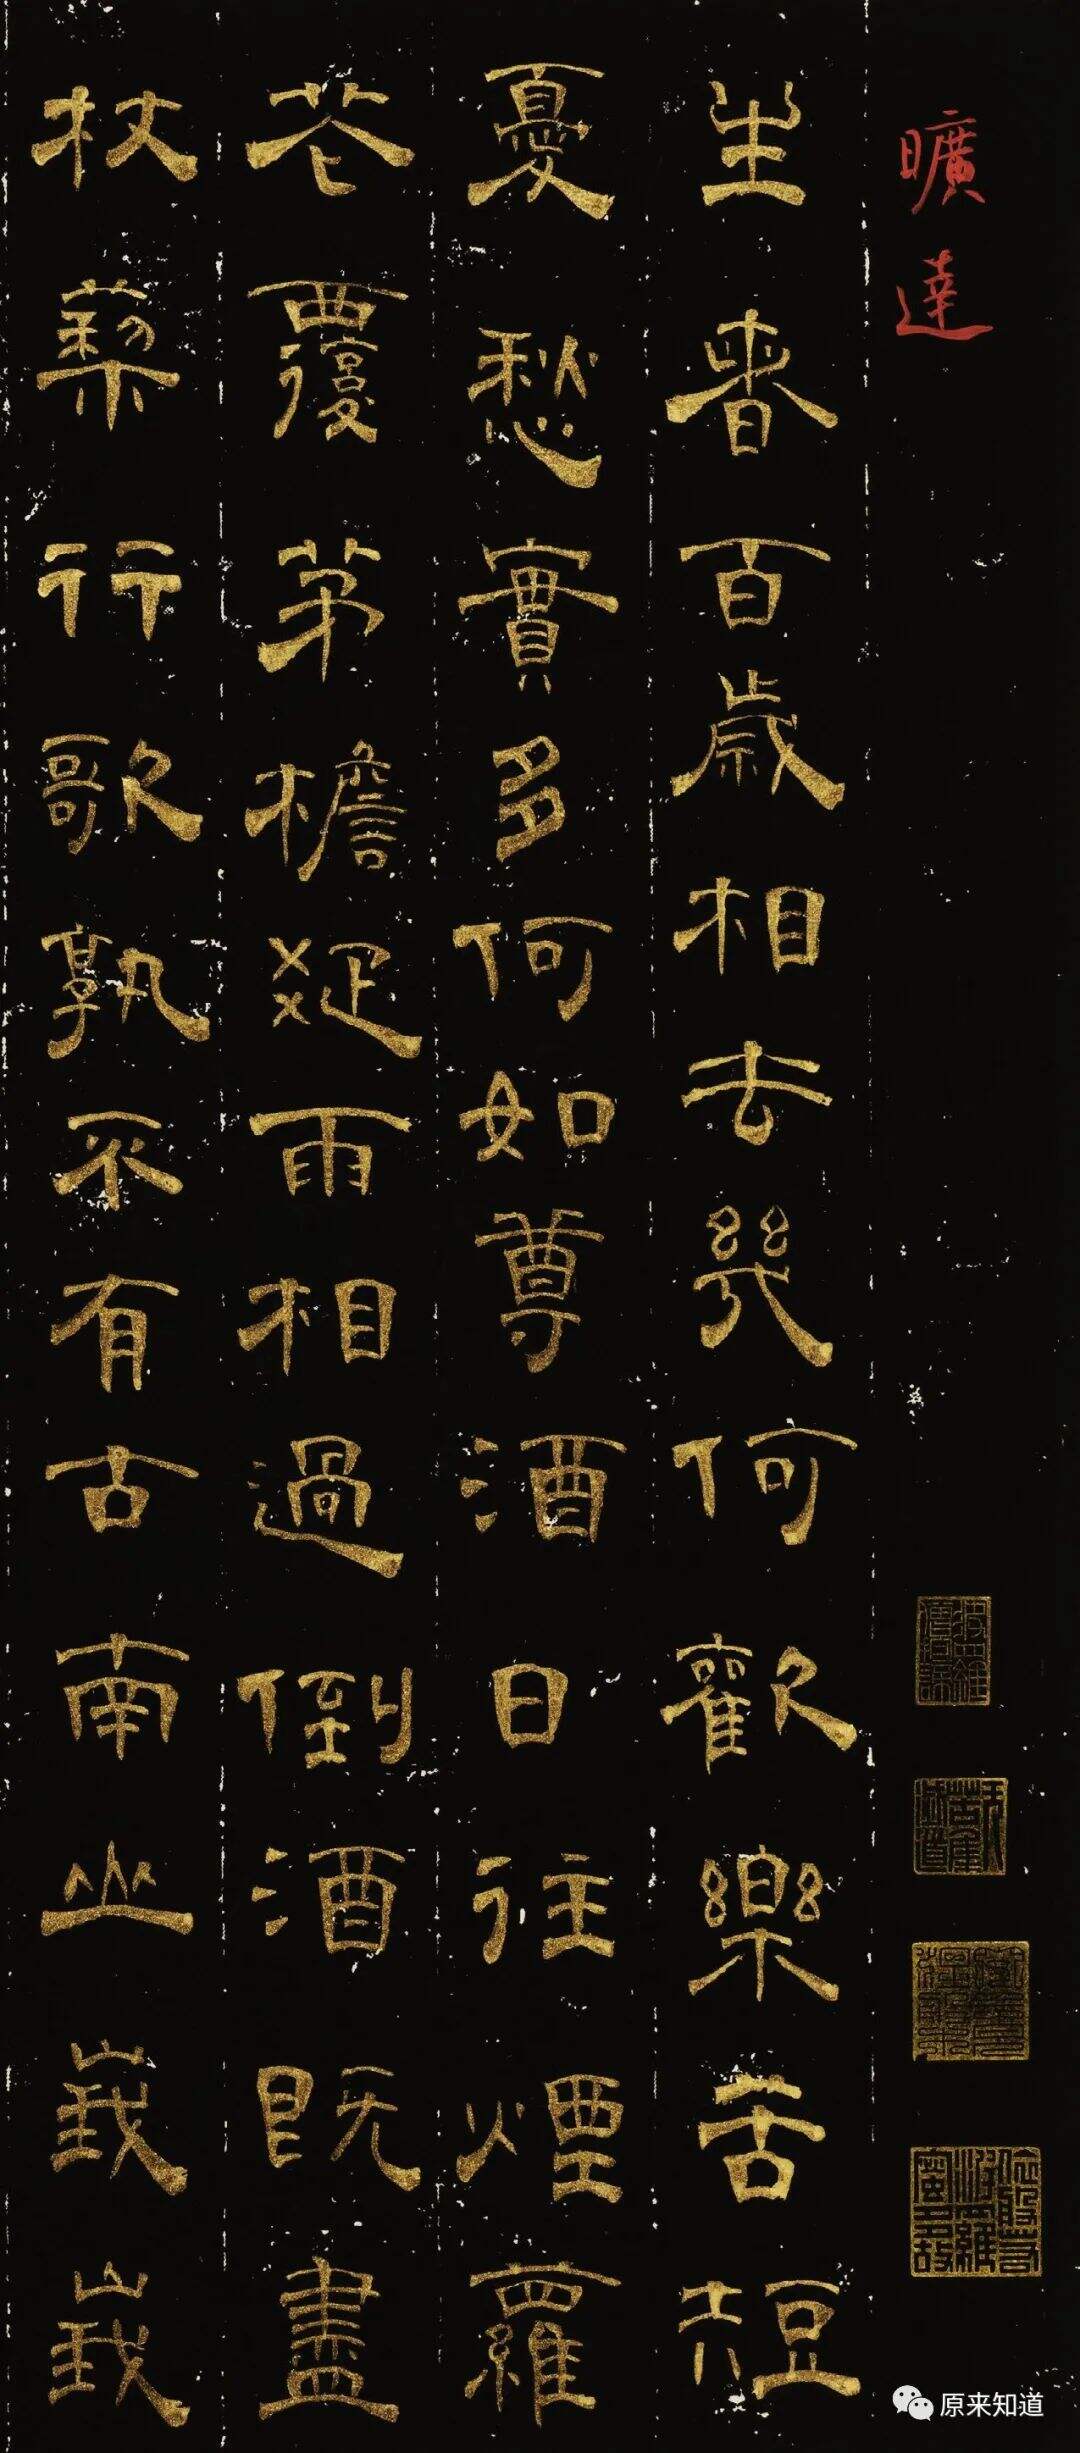 曠達
生者百歲相去幾何歡樂苦短
憂愁實多何如尊酒日往煙羅
花覆茅檐疏雨相過倒酒既盡
杖藜行歌孰不有古南山峩峩
原来知道